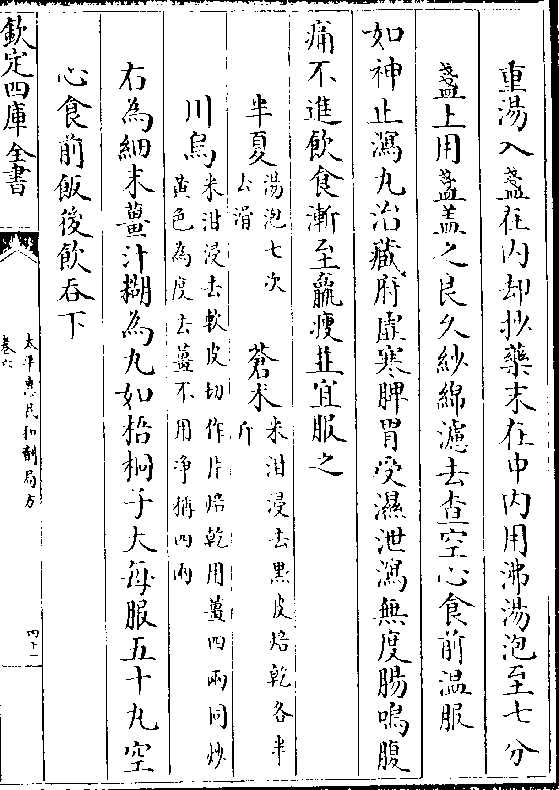 重湯入盞在内却抄藥末在中内用沸湯泡至七分
盞上用盞盖之良久紗綿濾去查空心食前温服
如神止瀉丸治藏府虚寒脾胃受濕泄瀉無度腸鳴腹
痛不進飲食漸至羸瘦並宜服之
半夏湯泡七次去滑 蒼术米泔浸去黒皮焙乾各半斤
川烏米泔浸去軟皮切作片焙乾用薑四兩同炒黄色為度去薑不用净稱四兩
右為細末薑汁糊為丸如梧桐子大每服五十丸空
心食前飯後飲吞下
欽定四庫全書
太平惠民和劑局方
卷六
四十二